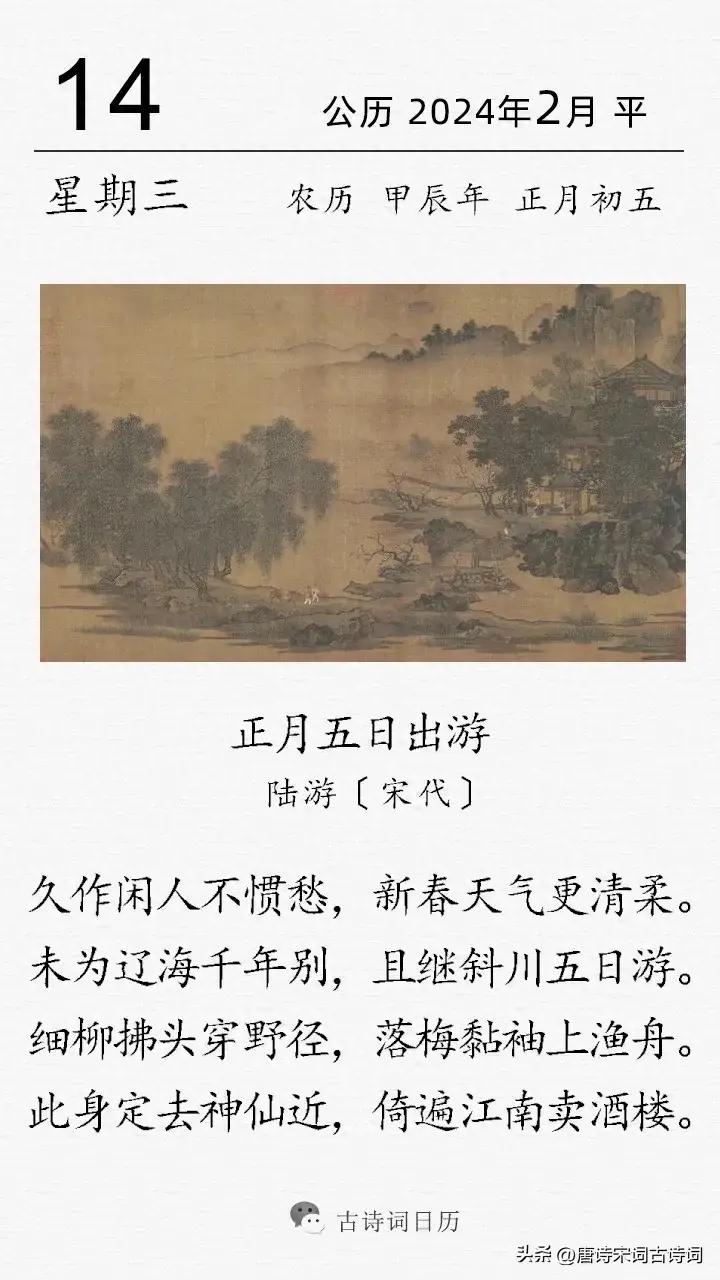 14
公历 2024年2月 平
星期三
农历 甲辰年 正月初五
正月五日出游
陆游〔宋代〕
久作闲人不惯愁，新春天气更清柔。
未为辽海千年别，且继斜川五日游。
细柳拂头穿野径，落梅黏袖上渔舟。
此身定去神仙近，倚遍江南卖酒楼。
古诗词日历
头条 @唐诗宋词古诗词